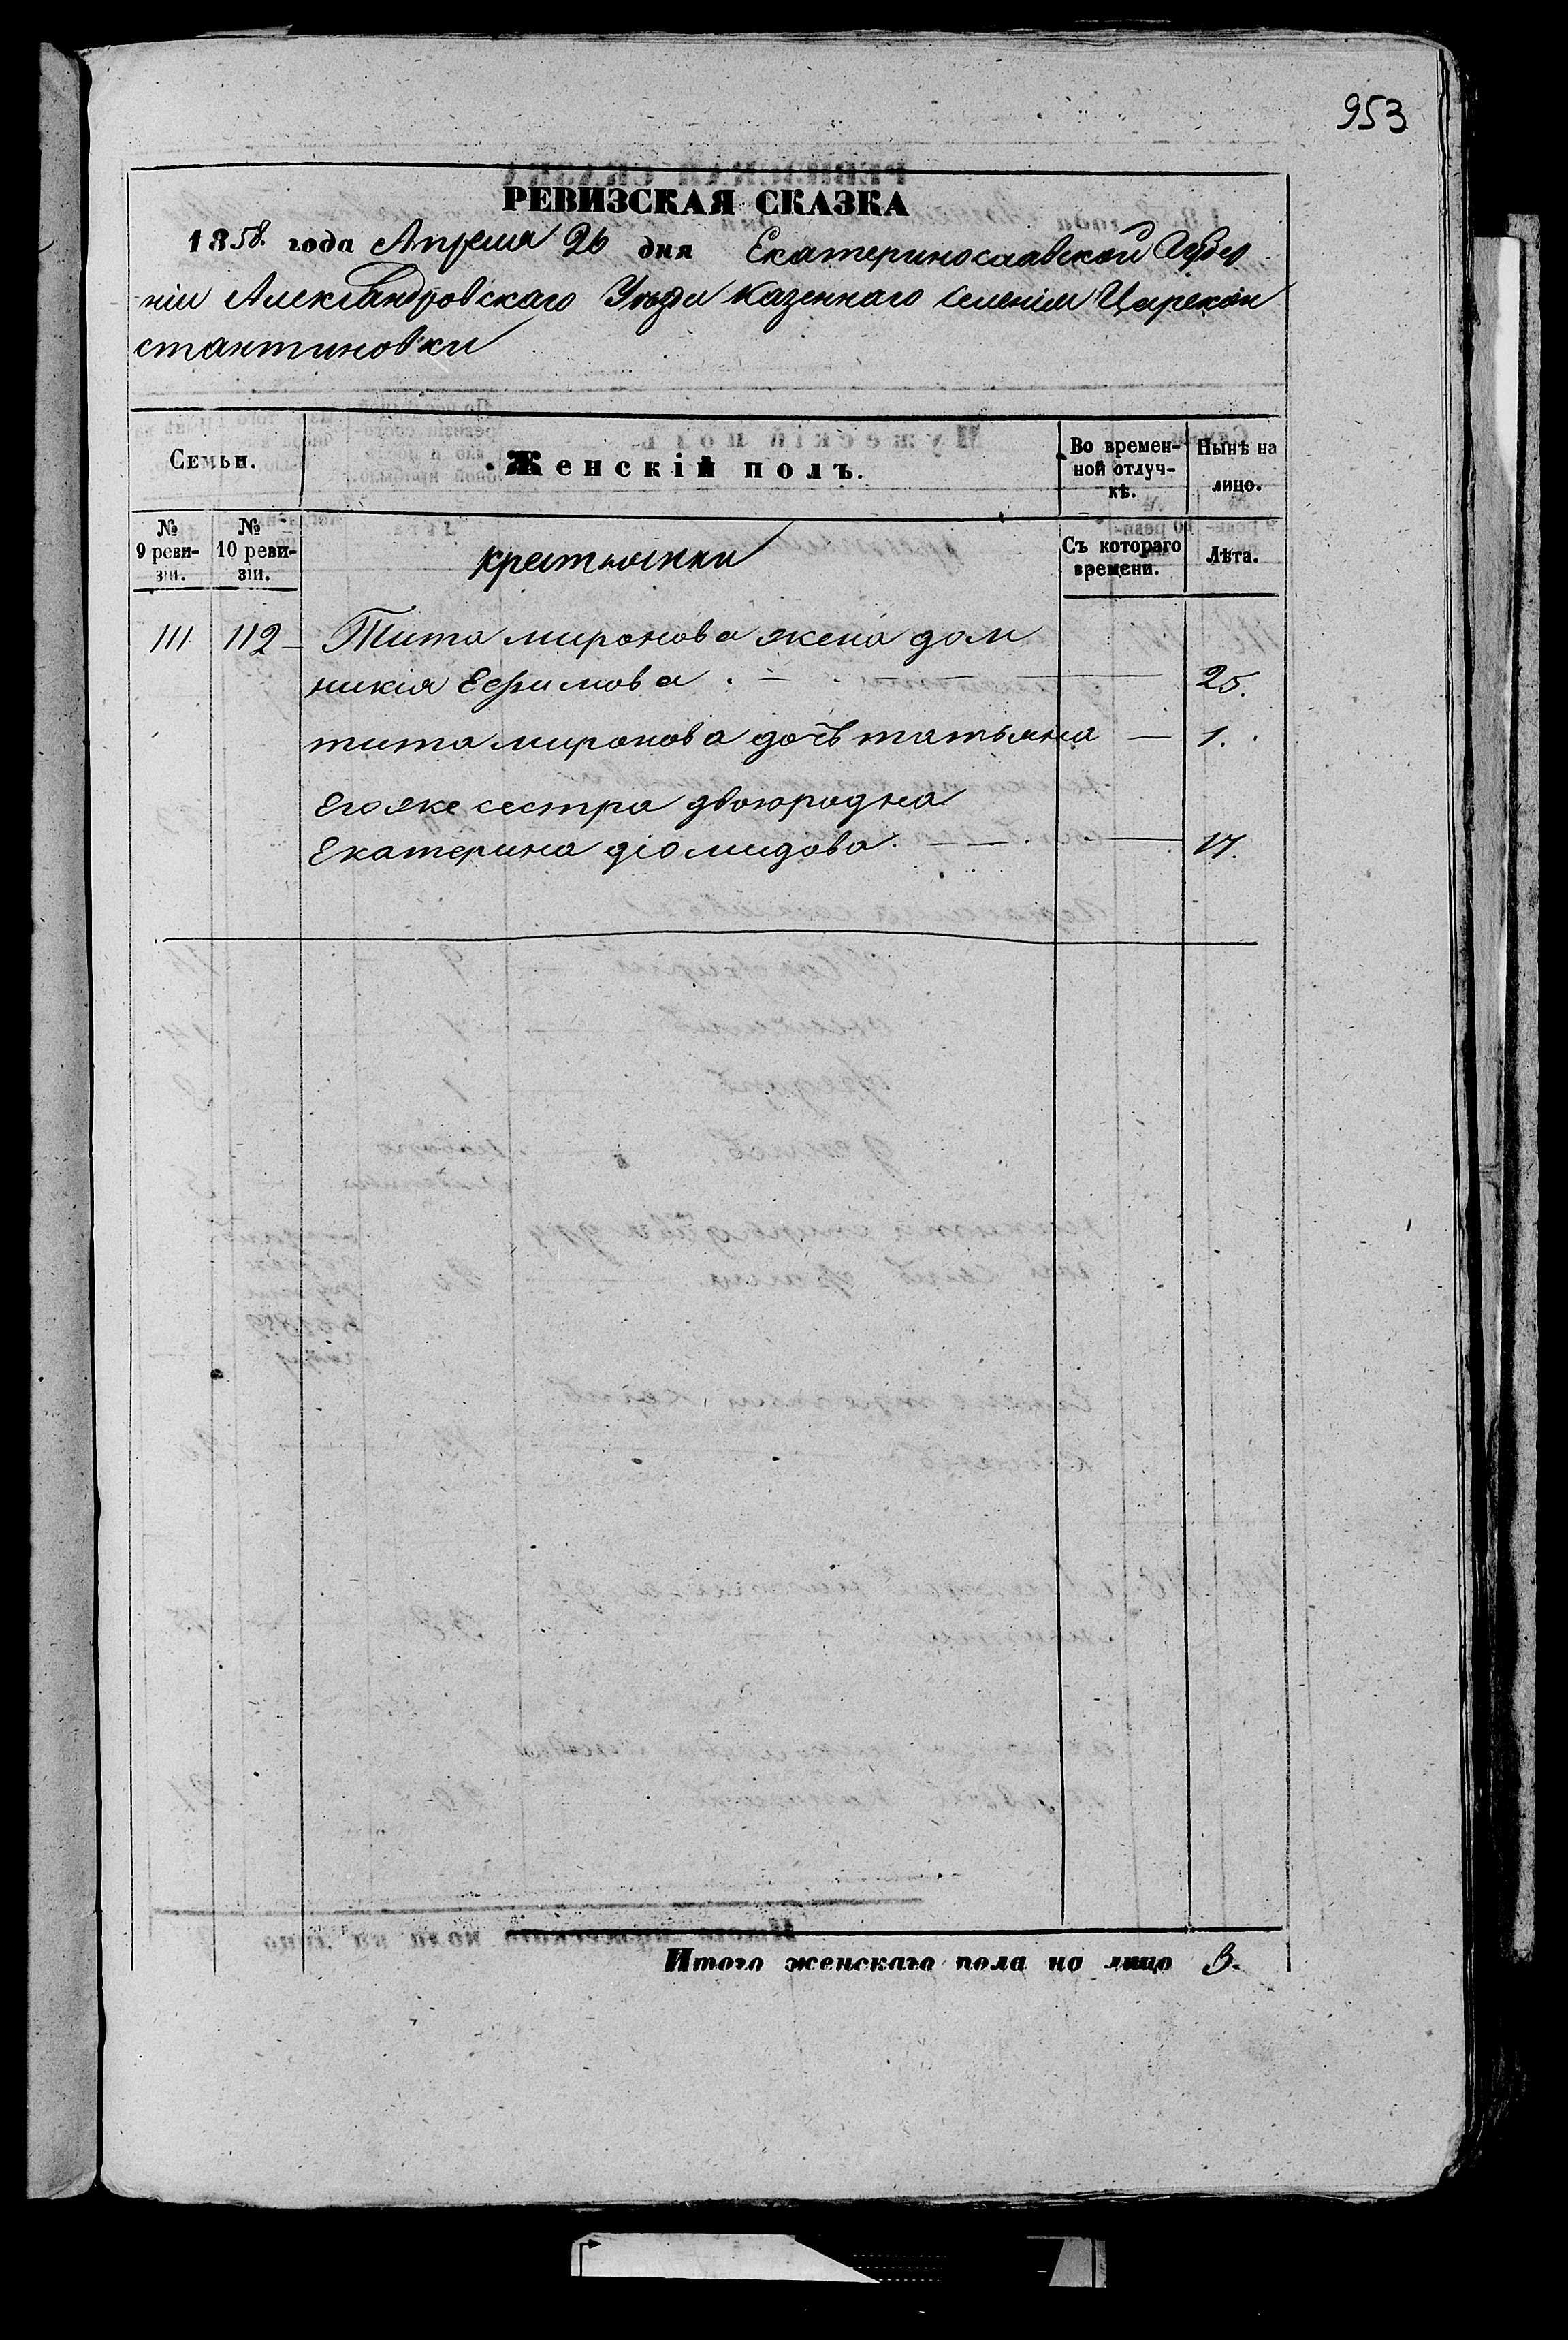 953
РЕВИЗСКАЯ СКАЗКА
1858. года Апреля 26 дня Екатеринославской Губер
ніи Александровскаго Уезда казеннаго селенія Царекон
стантиновки
Семьи.
Женскій полъ.
Во времен-
ной отлуч-
кѣ.
Нынѣ на
лицо.
№
9 реви-
зіи.
№
10 реви-
зіи.
крестьянки
Съ котораго
времени.
Лѣта.
111 112 Тита миронова жена дом
никія Ефимова 25.
тита миронова дочь татьяна 1.
Его же сестра двоюродна
Екатерина діомидова 17.
Итого женскаго пола на лицо 3.